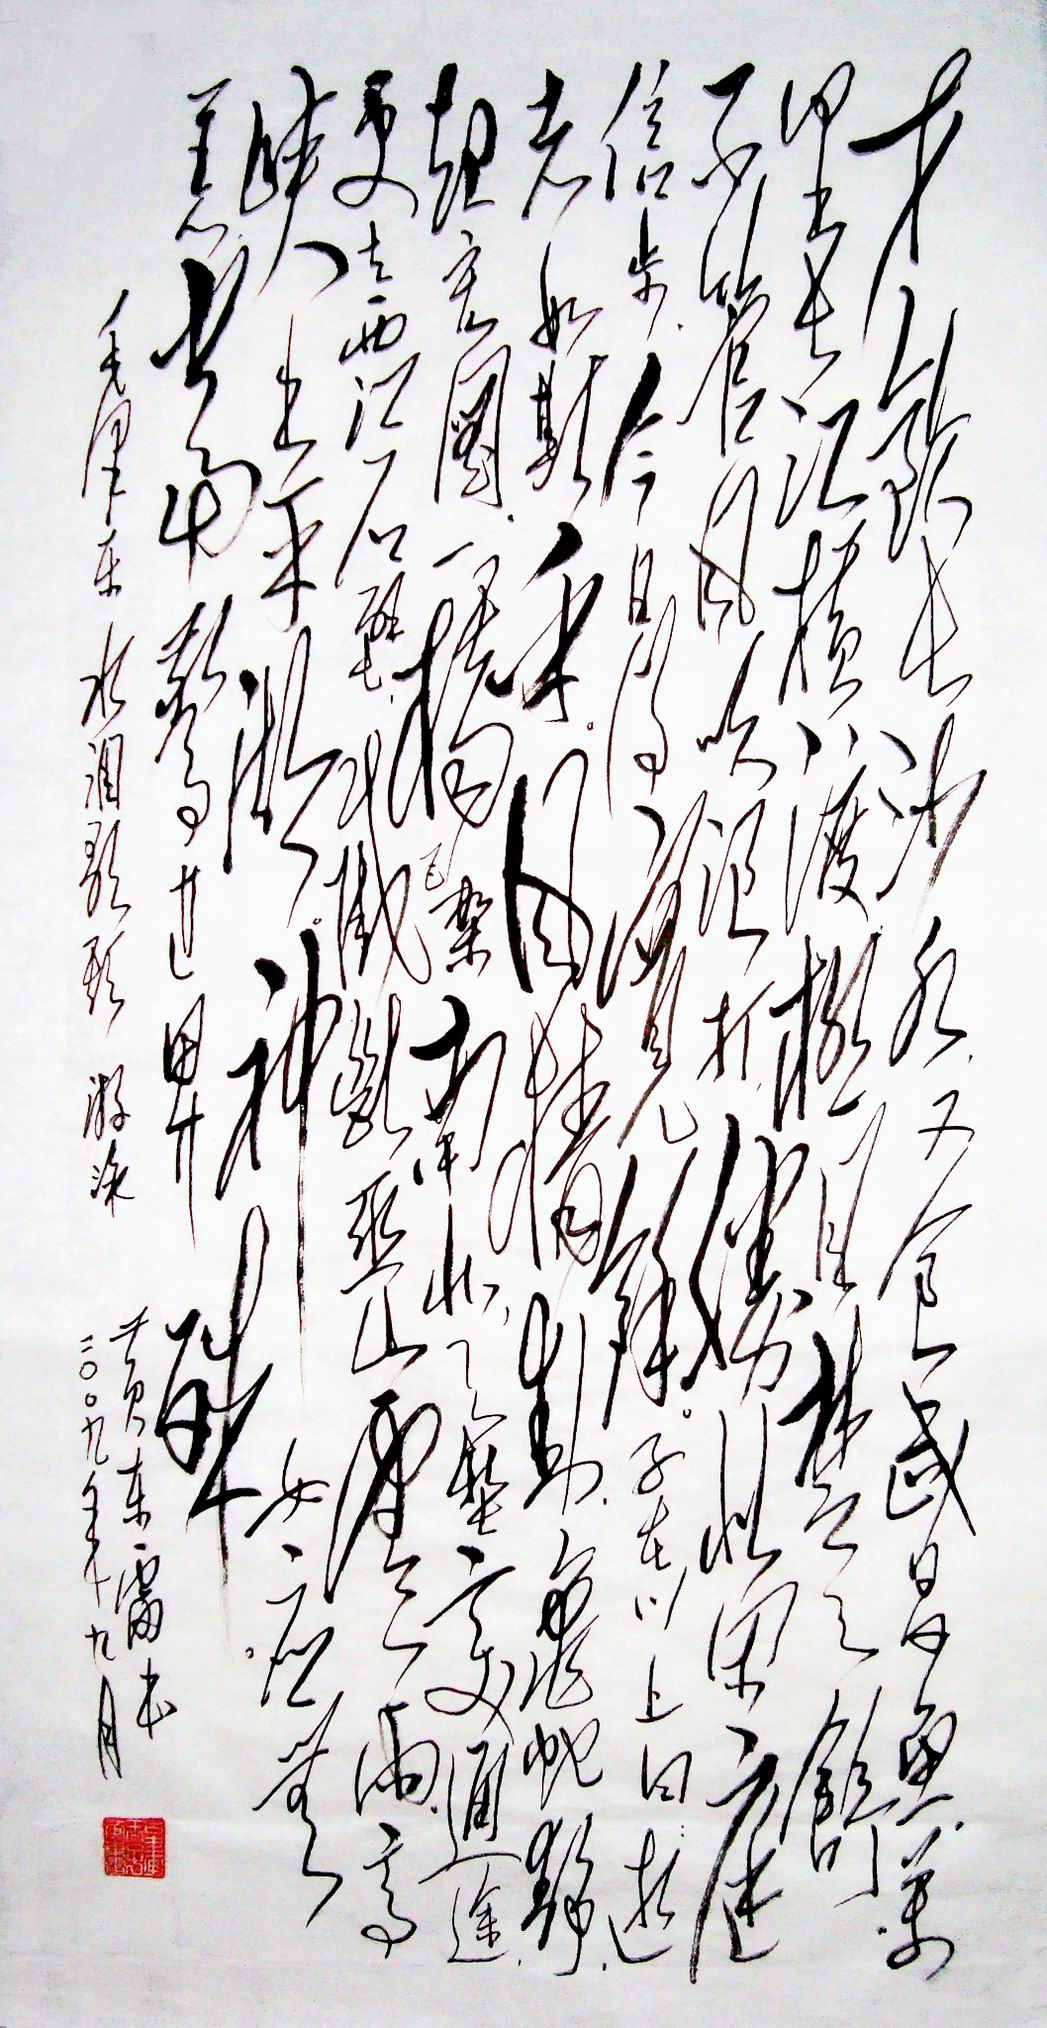 才饮长沙水又食武昌鱼万
里长江横渡极目楚天舒
不管风吹浪打胜似闲庭
信步今日得宽馀子在川上曰逝
者如斯乎风樯动龟蛇静
起宏图一桥飞架南北天堑变通途
更立西江石壁截断巫山云雨高
峡出平湖神女应无
恙当惊世界殊
毛泽东 水调歌头 游泳
黄东雷书
二〇〇九年九月